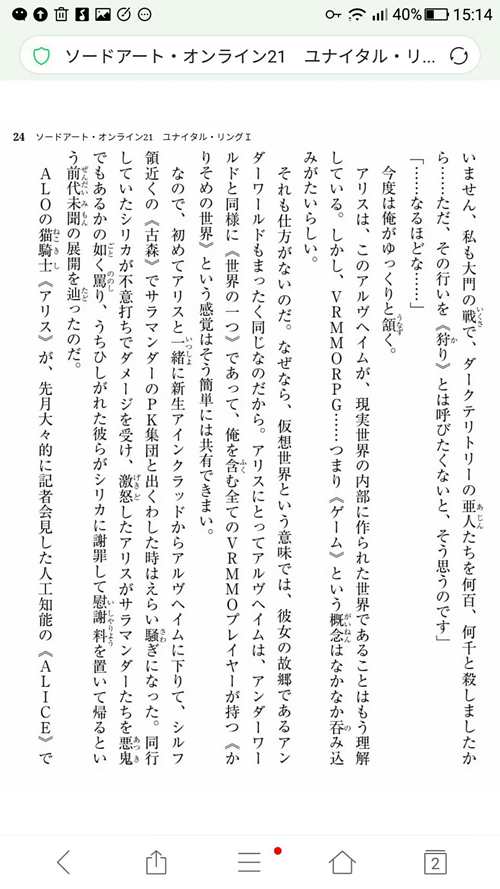 40% 15:14
ソードアート・オンライン21　ユナイタル・リ...
24 ソードアート・オンライン21　ユナイタル・リングⅠ
いません、私も大門の戦で、ダークテリトリーの亜人たちを何百、何千と殺しましたか
ら……ただ、その行いを《狩り》とは呼びたくないと、そう思うのです」
「……なるほどな……」
今度は俺がゆっくりと頷く。
アリスは、このアルヴヘイムが、現実世界の内部に作られた世界であることはもう理解
している。しかし、ＶＲＭＭＯＲＰＧ……つまり《ゲーム》という概念はなかなか呑み込
みがたいらしい。
それも仕方がないのだ。なぜなら、仮想世界という意味では、彼女の故郷であるアン
ダーワールドもまったく同じなのだから。アリスにとってアルヴヘイムは、アンダーワー
ルドと同様に《世界の一つ》であって、俺を含む全てのＶＲＭＭＯプレイヤーが持つ《か
りそめの世界》という感覚はそう簡単には共有できまい。
なので、初めてアリスと一緒に新生アインクラッドからアルヴヘイムに下りて、シルフ
領近くの《古森》でサラマンダーのＰＫ集団と出くわした時はえらい騒ぎになった。同行
していたシリカが不意打ちでダメージを受け、激怒したアリスがサラマンダーたちを悪鬼
でもあるかの如く罵り、うちひしがれた彼らがシリカに謝罪して慰謝料を置いて帰るとい
う前代未聞の展開を辿ったのだ。
ＡＬＯの猫騎士《アリス》が、先月大々的に記者会見した人工知能の《ＡＬＩＣＥ》で
2